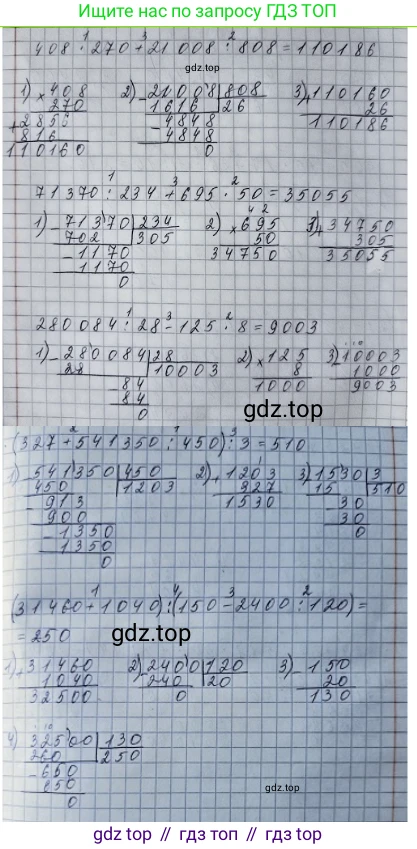 Ищите нас по запросу ГДЗ ТОП
408 · 270 + 21 008 : 808 = 110186
1) × 408
270
+ 2856
816
110160
2) - 21008 | 808
1616 | 26
- 4848
4848
0
3) + 110160
26
110186
71370 : 234 + 695 · 50 = 35055
1) - 71370 | 234
702 | 305
- 1170
1170
0
2) × 695
50
34750
3) + 34750
305
35055
280084 : 28 - 125 · 8 = 9003
1) - 280084 | 28
28 | 10003
- 84
84
0
2) × 125
8
1000
3) - 10003
1000
9003
gdz.top
(327 + 541350 : 450) : 3 = 510
1) - 541350 | 450
450 | 1203
- 913
900
- 1350
1350
0
2) + 1203
327
1530
3) - 1530 | 3
15 | 510
- 30
30
0
(31460 + 1040) : (150 - 2400 : 120) =
= 250
gdz.top
1) + 31460
1040
32500
2) - 2400 | 120
240 | 20
0
3) - 150
20
130
4) - 32500 | 130
260 | 250
- 650
650
0
gdz.top
vk.com/gdz_top // gdz.top // gdz.top